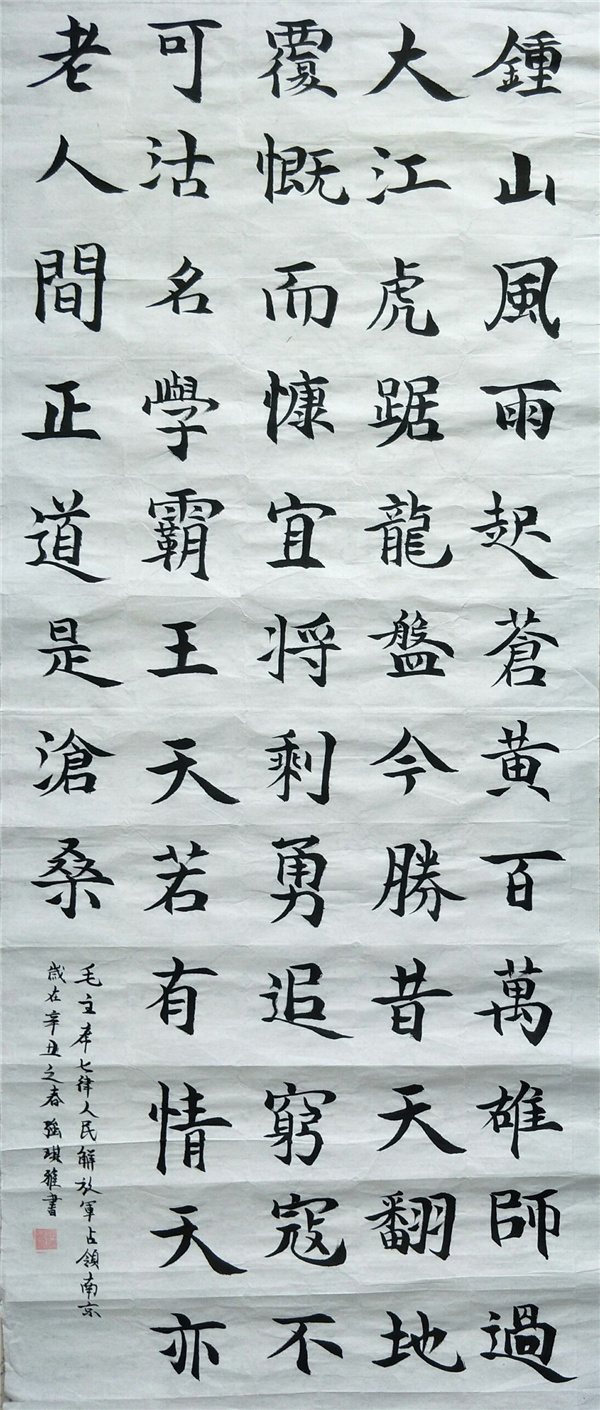 鍾山風雨起蒼黃百萬雄師過
大江虎踞龍盤今勝昔天翻地
覆慨而慷宜将剩勇追窮寇不
可沽名學霸王天若有情天亦
老人間正道是滄桑
毛主席七律人民解放軍占領南京
歲在辛丑之春琪雅書